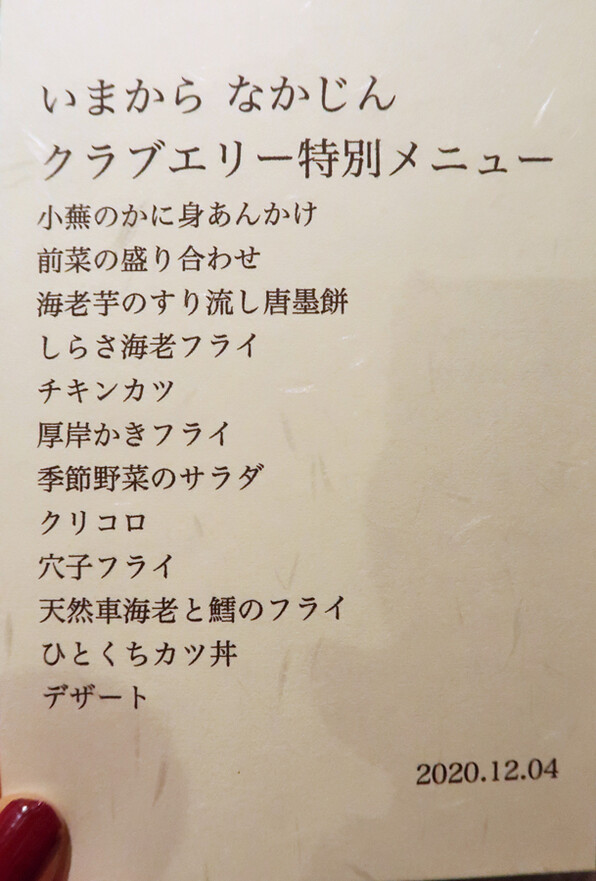 いまから なかじん
クラブエリー特別メニュー
小蕪のかに身あんかけ
前菜の盛り合わせ
海老芋のすり流し唐墨餅
しらさ海老フライ
チキンカツ
厚岸かきフライ
季節野菜のサラダ
クリコロ
穴子フライ
天然車海老と鱈のフライ
ひとくちカツ丼
デザート
2020.12.04